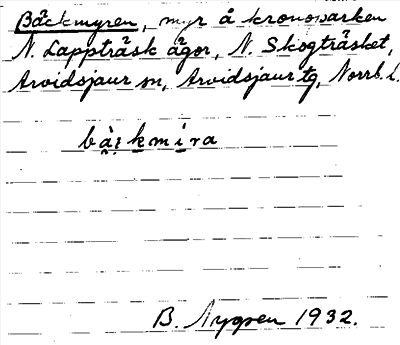 Bäckmyren, myr å kronoparken
N. Lappträsk ägor, N. Skogträsket,
Arvidsjaur sn, Arvidsjaur tg, Norrb. l.
B. Nygren 1932.